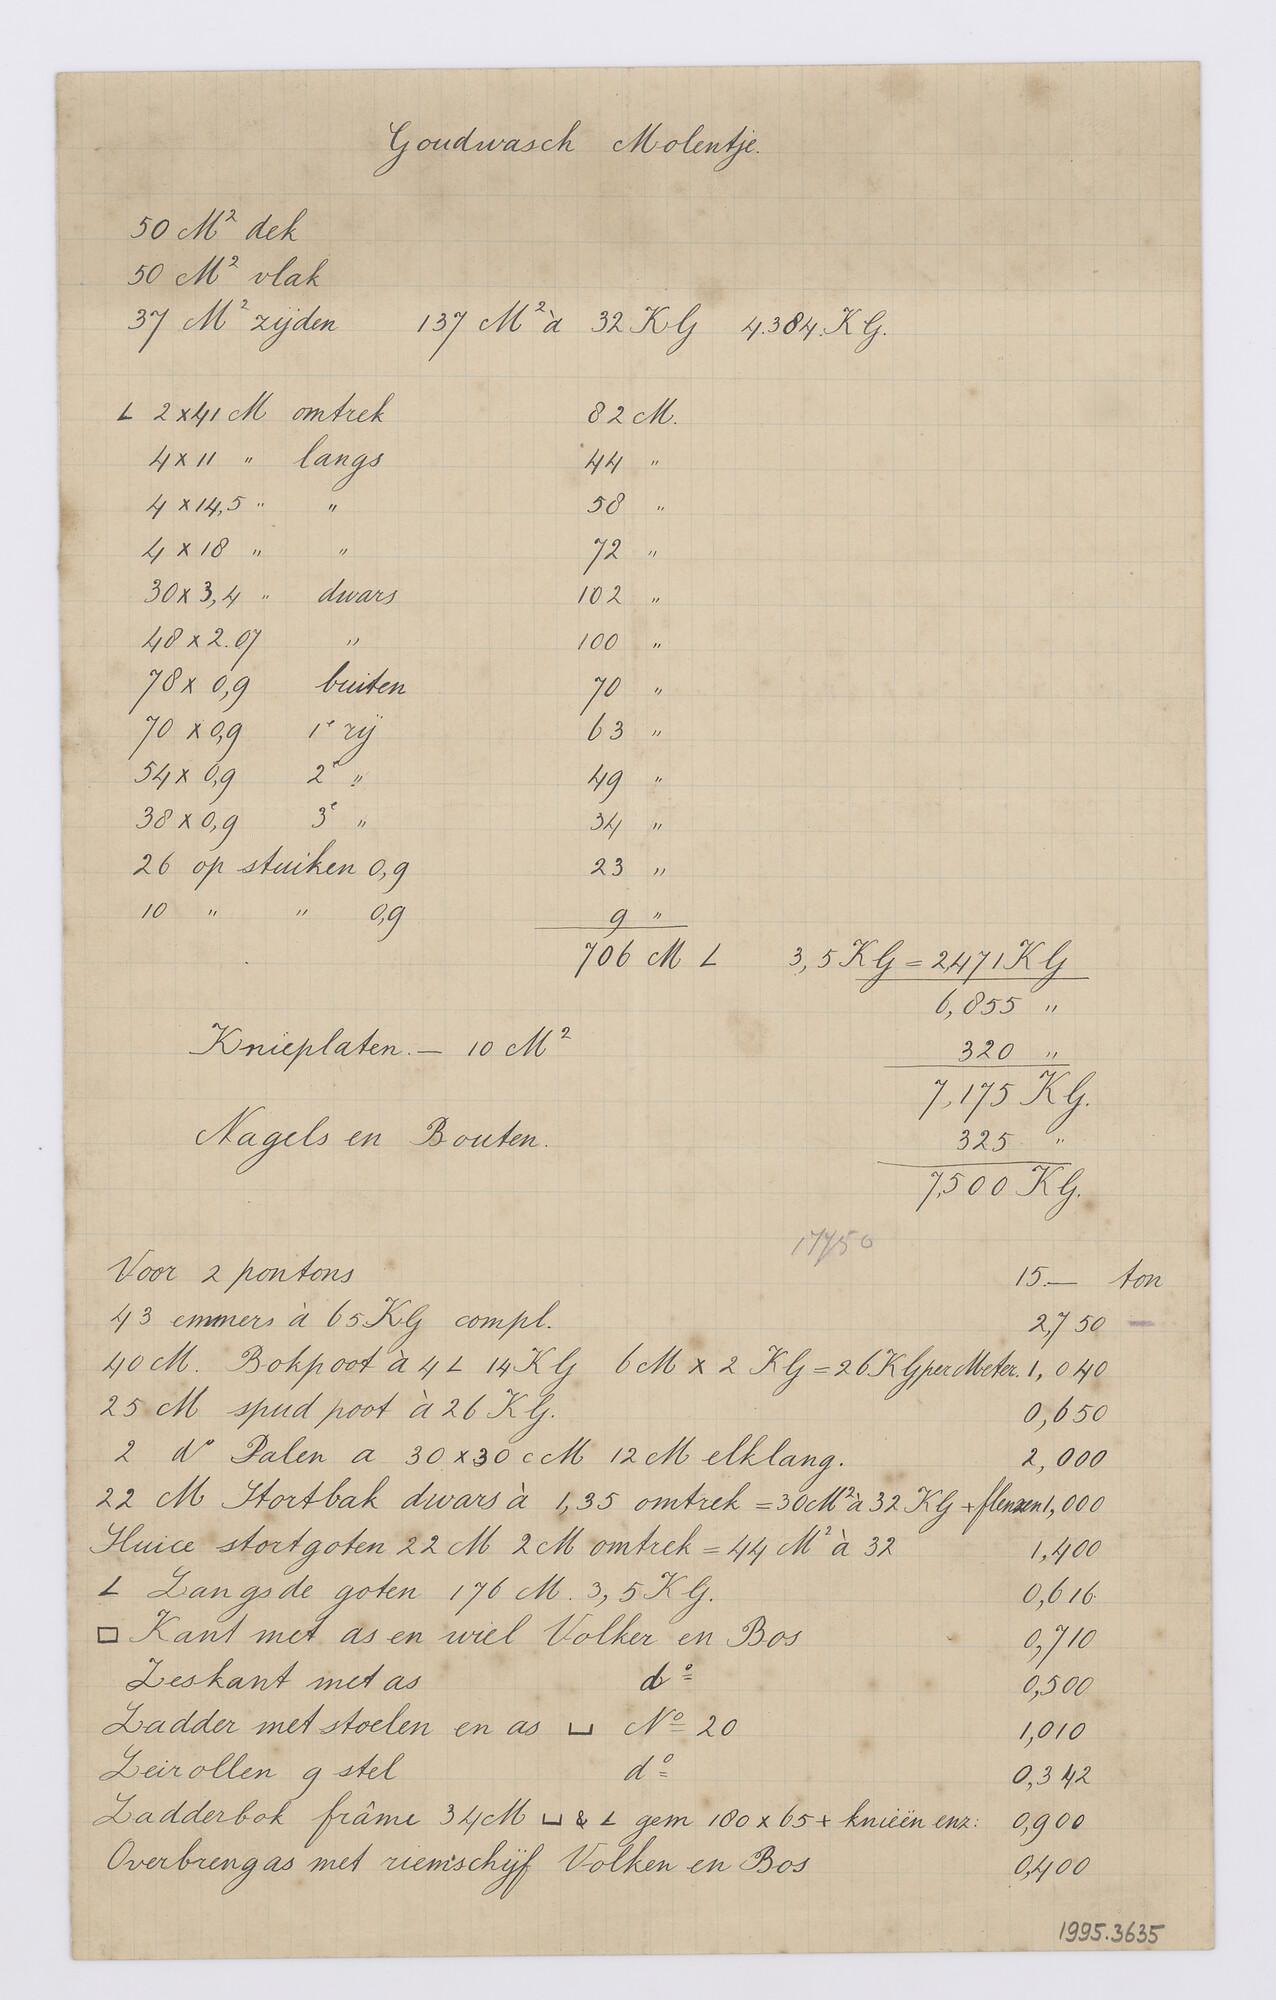 Goudwasch Molentje.
50 M² dek
50 M² vlak
37 M² zijden 137 M² à 32 KG 4.384. KG.
L 2 x 41 M omtrek 82 M.
4 x 11 " langs 44 "
4 x 14,5 " " 58 "
4 x 18 " " 72 "
30 x 3,4 " dwars 102 "
48 x 2.07 " 100 "
78 x 0,9 buiten 70 "
70 x 0,9 1e rij 63 "
54 x 0,9 2e " 49 "
38 x 0,9 3e " 34 "
26 op stuiken 0,9 23 "
10 " " 0,9 9 "
706 M L 3,5 KG = 2471 KG
6,855 "
Knieplaten. — 10 M² 320 "
7,175 KG.
Nagels en Bouten. 325 "
7,500 KG.
17750
Voor 2 pontons 15.— ton
43 emmers à 65 KG compl. 2,750 —
40 M. Bokpoot à 4 L 14 KG 6 M x 2 KG = 26 KG per Meter. 1,040
25 M spud poot à 26 KG. 0,650
2 do Palen a 30 x 30 cM 12 M elk lang. 2,000
22 M Stortbak dwars à 1,35 omtrek = 30 M² à 32 KG + flenzen 1,000
Sluice stortgoten 22 M 2 M omtrek = 44 M² à 32 1,400
L Langs de goten 176 M. 3,5 KG. 0,616
□ Kant met as en wiel Volker en Bos 0,710
Zeskant met as do 0,500
Ladder met stoelen en as ⊔ No 20 1,010
Leirollen 9 stel do 0,342
Ladderbok frâme 34 M ⊔ & L gem 180 x 65 + knieën enz: 0,900
Overbreng as met riemschijf Volken en Bos 0,400
1995.3635